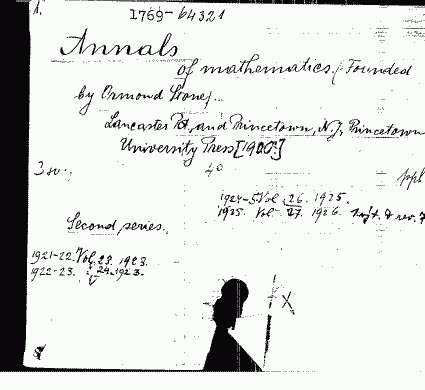 1769-64321
Annals
of mathematics. (Founded
by Ormond Stone)...
Lancaster Pa, and Princetown, N.J, Princetown
University Press [1900]
4o
3 sv.
1924-5 Vol. 26. 1925.
1925. Vol. 27. 1926.
Second series.
1921-22. Vol. 23. 1923.
1922-23. 24. 1923.
X